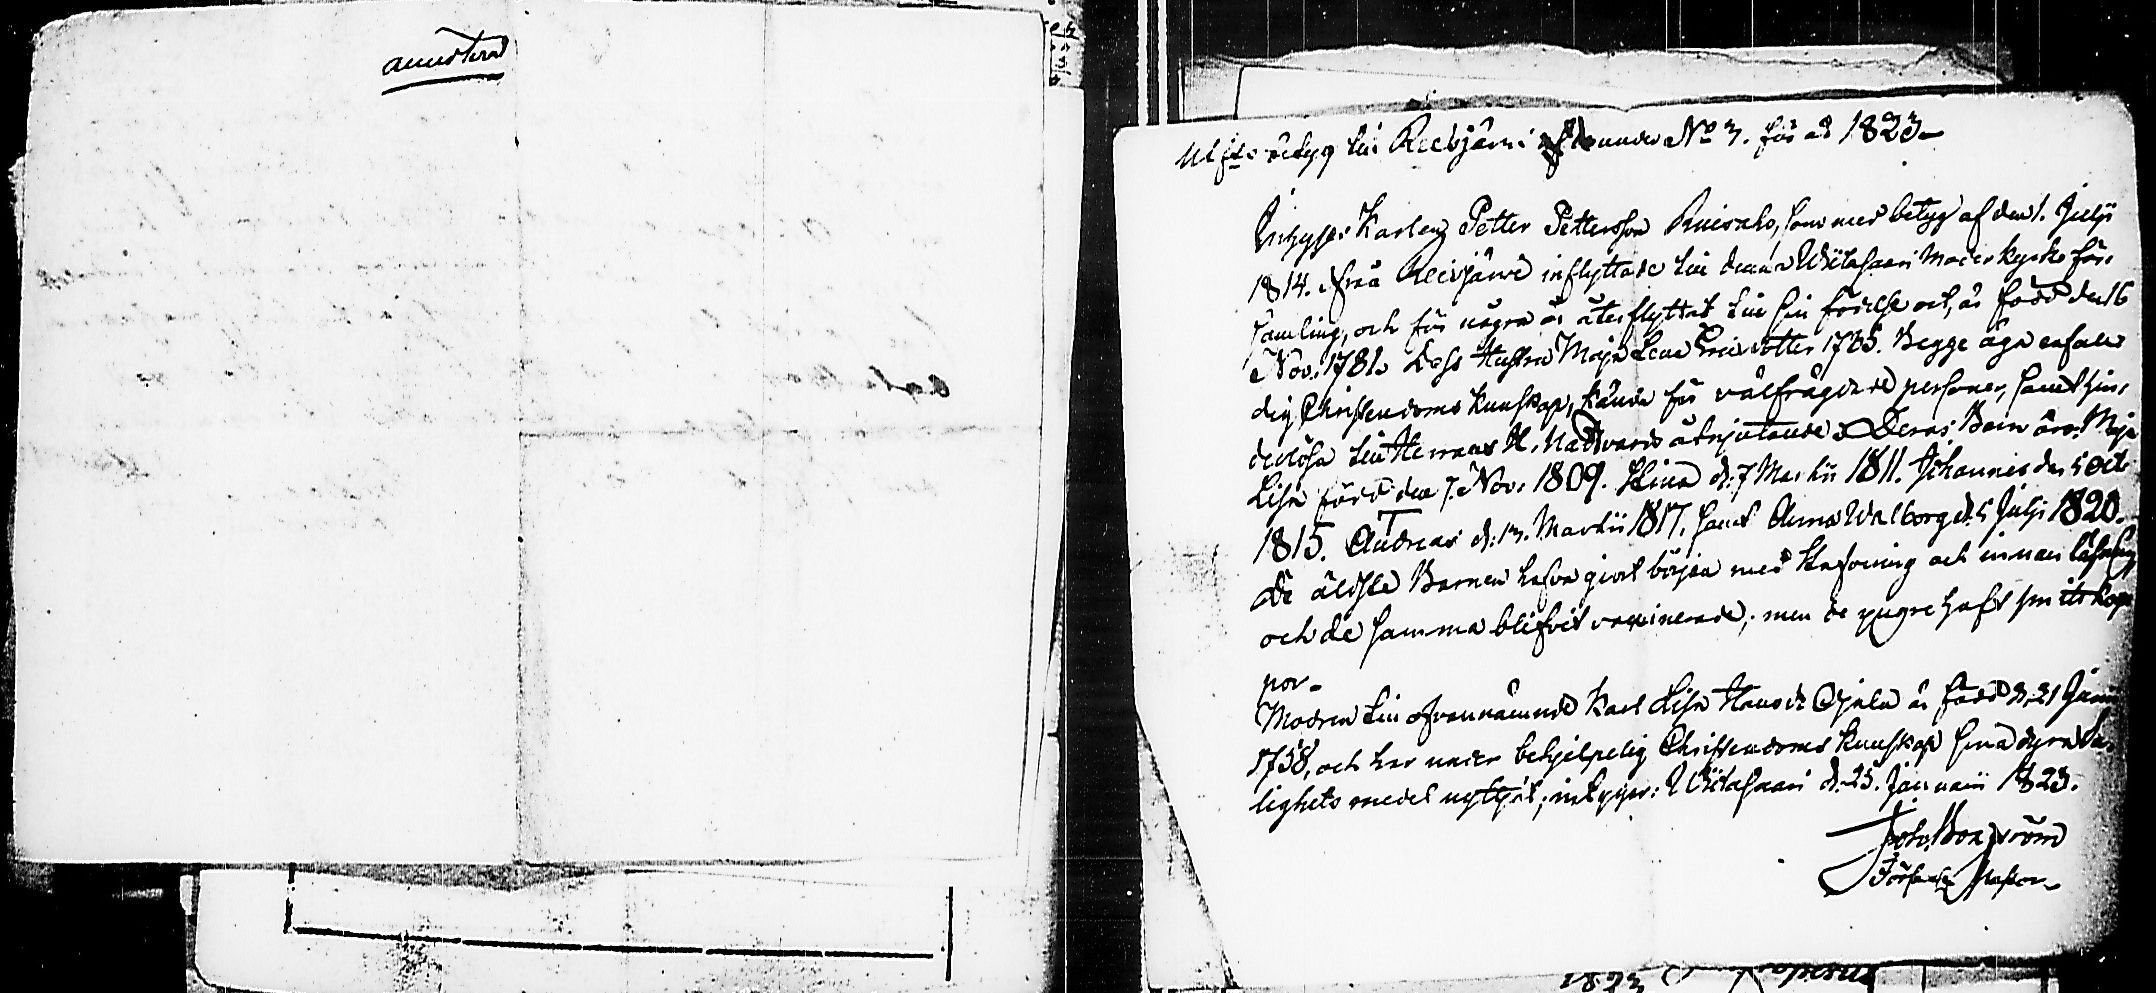 annoterad
Utfl. betyg till Reisjärvi under No 3. för år 1823
Inhyses Karlen Petter Pettersson Ruisalo, som med betyg af den 1. Julji
1814. ifrån Reisjärvi inflyttade till denna Wiitasaari Moderkyrko för-
samling, och för några år återflyttat till sin födelse ort, är född den 16
Nov. 1781. Dess Hustru Maja Lena Ersdotter 1785. Begge äga enfal-
dig Christendoms kunskap, kände för välfrägdade personer, samt hin-
derlösa till Herrans H. Nattvards åtnjutande. Deras Barn äro: Maja
Lisa född den 7. Nov. 1809. Stina d: 7 Martii 1811. Johannes den 5 Octb.
1815. Andreas d: 13. Martii 1817. samt Anna Walborg d. 5 Julji 1820.
De äldste Barnen hafva giort början med stafvning och innan läsning
och de samma blifvit vaxinerade, men de yngre haft smitkop-
por.
Modren till ofvannämnde Karl Lisa Hansdr Ojala är född d. 21 Junii
1758, och har under behjelpelig Christendoms kunskap sina dyra Sa-
lighets medel nyttjat; intygar: Wiitasaari d. 25. Januarii 1823.
Joh. Bonsdröm
Församl. Pastor
1823